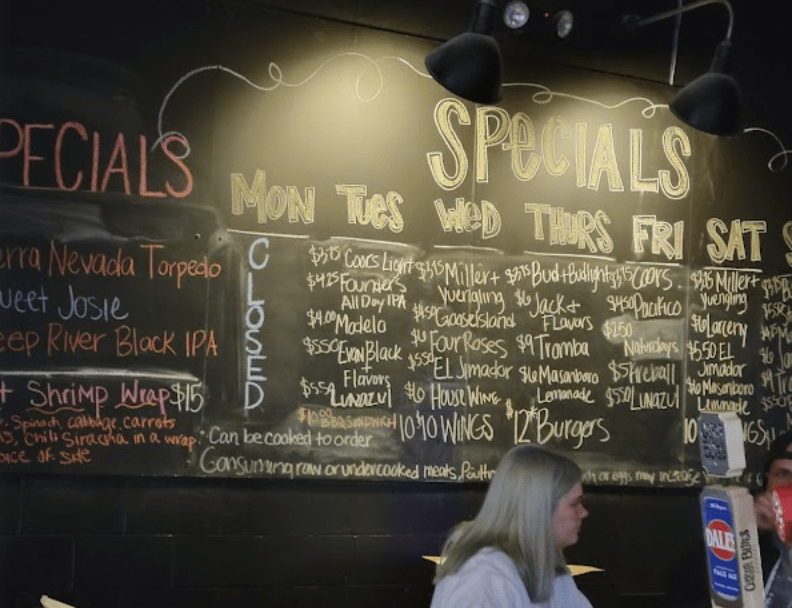 PECIALS
erra Nevada Torpedo
weet Josie
eep River Black IPA
+ Shrimp Wrap $15
Spinach, cabbage, carrots
Chili Siracha in a wrap.
oice of side
SPECIALS
MON
CLOSED
TUES
$3.75 Coors Light
$4.25 Founders
All Day IPA
$4.00 Modelo
$5.50 Evan Black
+
Flavors
$5.50 Lunazul
$10.00 BBQ SANDWICH
WED
$3.75 Miller +
Yuengling
$4.50 Goose Island
$6 Four Roses
$5.50 EL Jimador
$6 House Wine
10 $10 WINGS
THURS
$3.75 Bud + Budlight
$6 Jack +
Flavors
$9 Tromba
$6 Masonboro
Lemonade
$12* Burgers
FRI
$3.75 Coors
$4.50 Pacifico
$2.50
Naturdays
$5 Fireball
$5.50 Lunazul
SAT
$3.75 Miller +
Yuengling
$6 Larceny
$5.50 EL
Jimador
$6 Masonboro
Lemonade
10
WINGS
S
Can be cooked to order
Consuming raw or undercooked meats, Poultr
or eggs may increase
DALE'S
PALE ALE